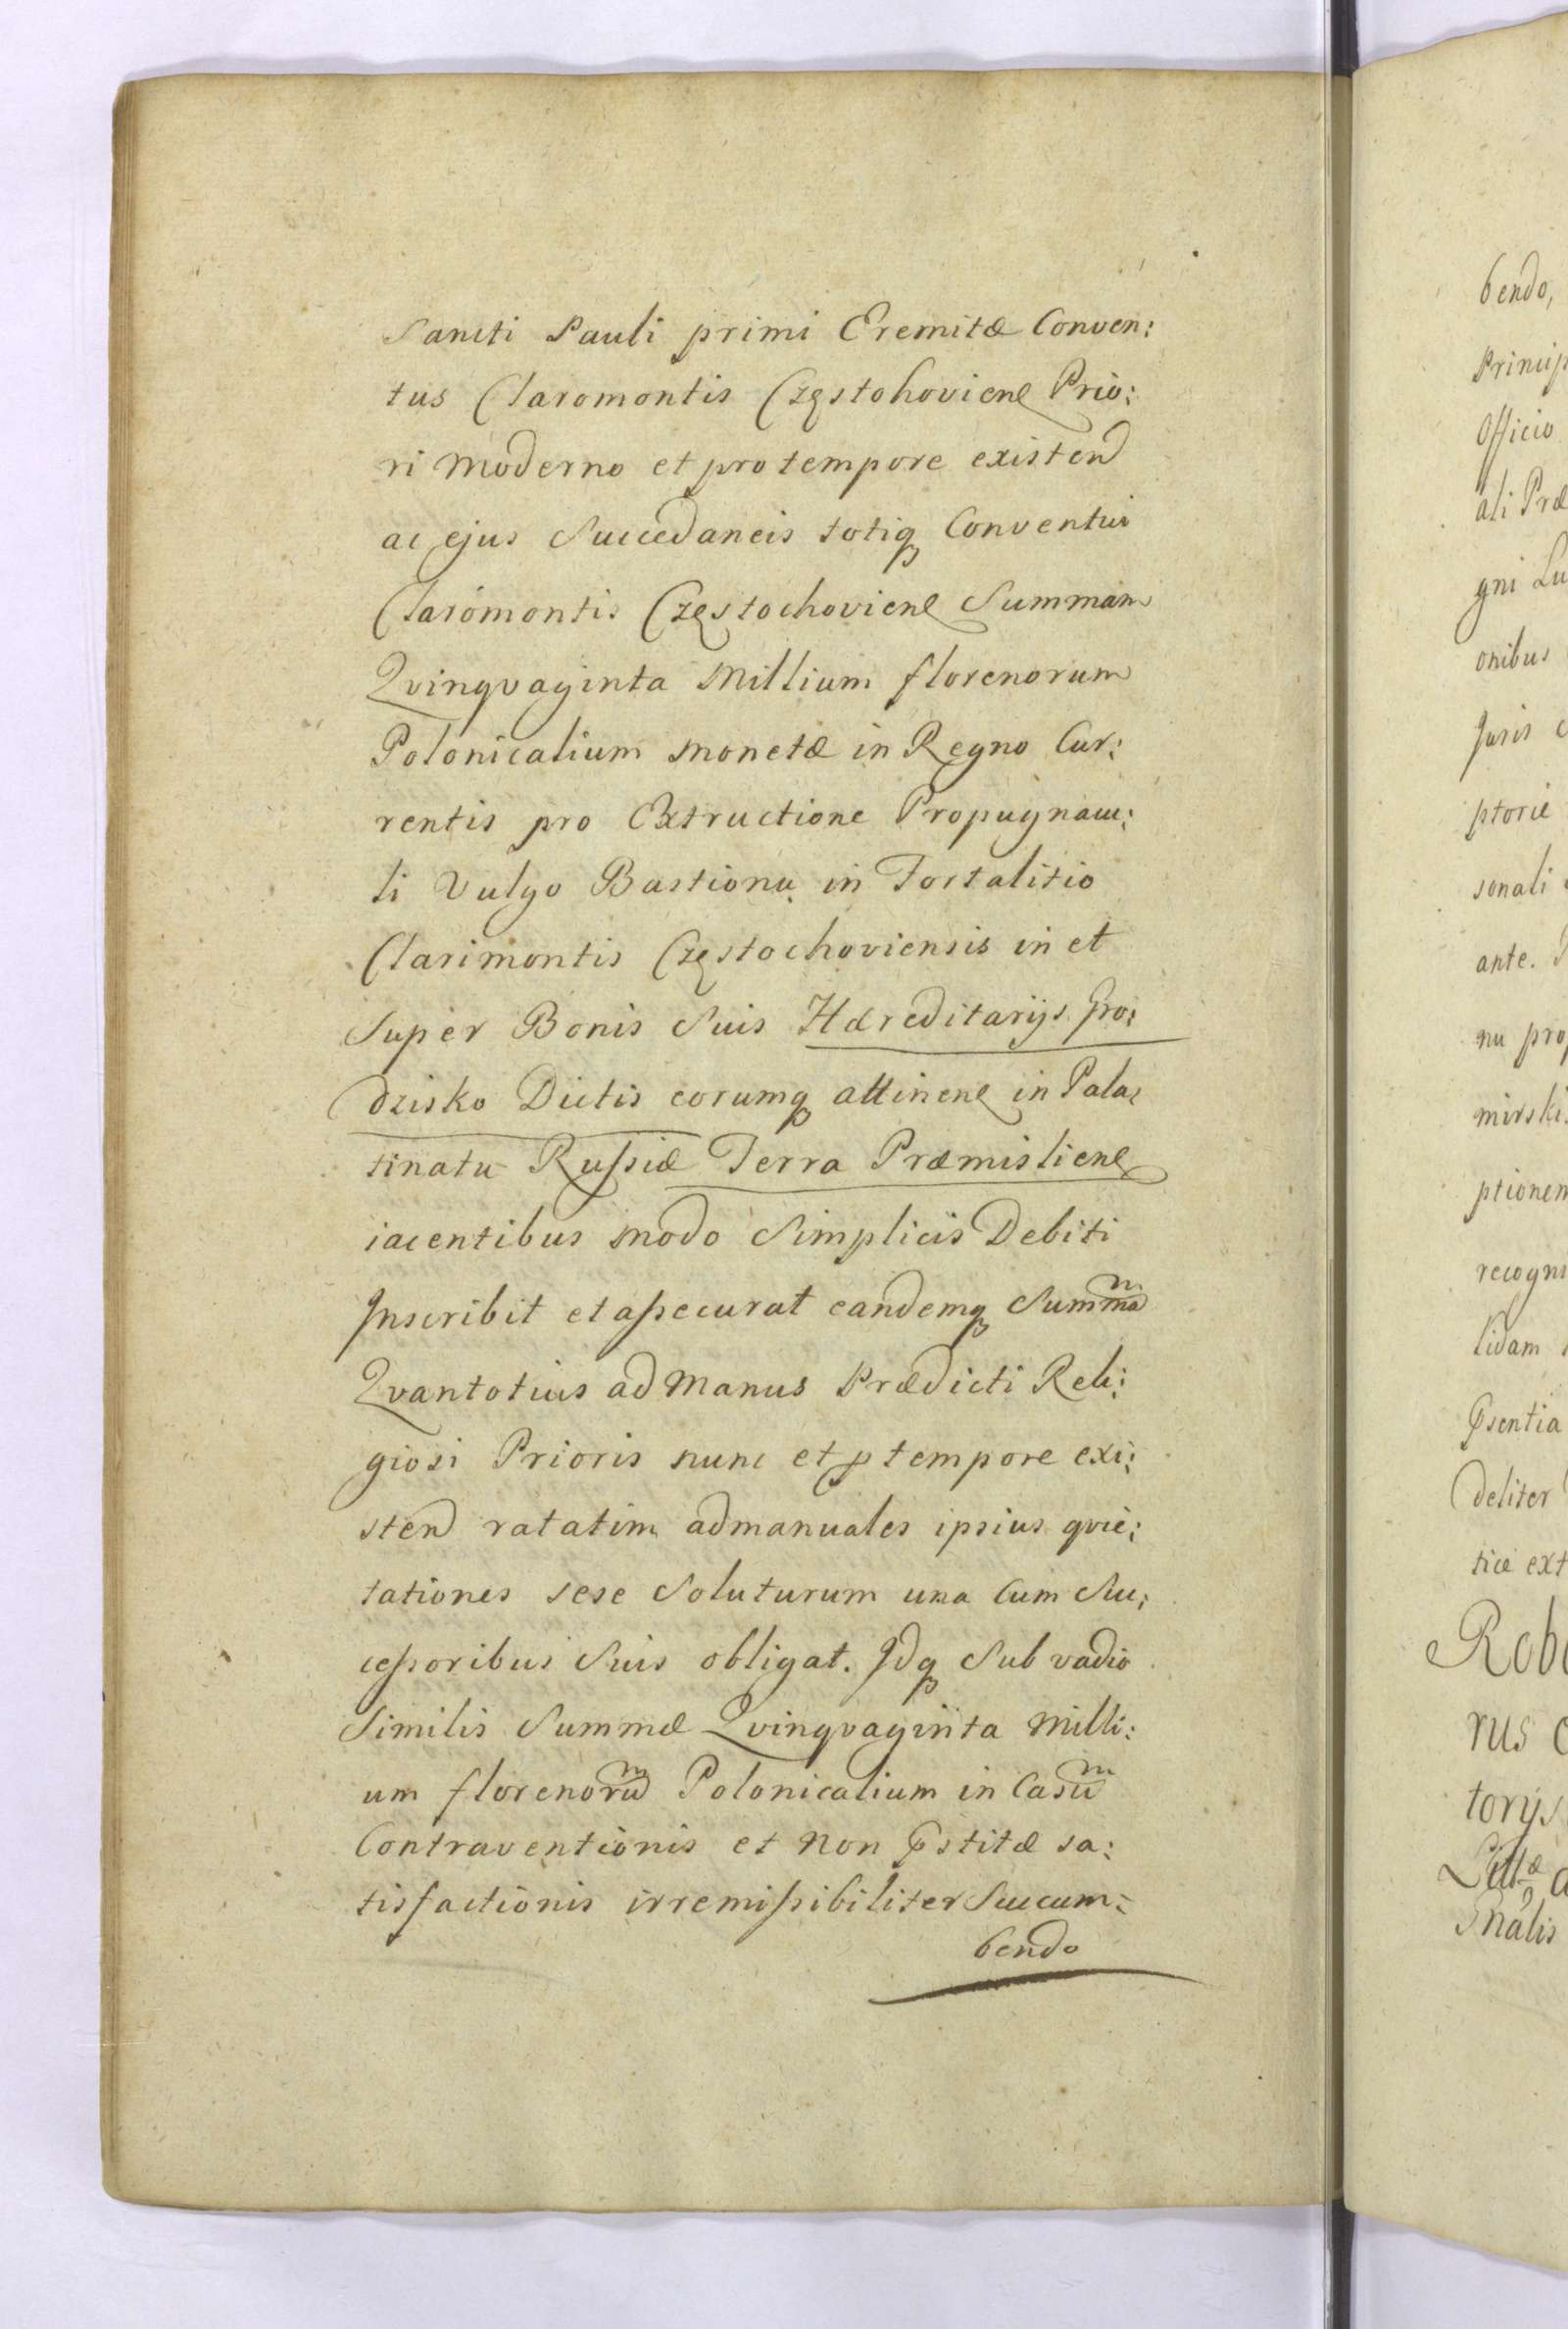 Sancti Pauli primi Eremitæ Conven:
tus Claromontis Częstohovien Prio:
ri Moderno et pro tempore existend
ac ejus Succedaneis totiq Conventui
Claromontis Częstochovien Summam
Qvinqvaginta Millium florenorum
Polonicalium Monetæ in Regno Cur:
rentis pro Extructione Propugnacu:
li Vulgo Bastionu in Fortalitio
Clarimontis Częstochoviensis in et
Super Bonis Suis Hæreditarijs Gro:
dzisko Dictis eorumq attinen in Pala:
tinatu Russiæ Terra Præmislien
iacentibus Modo Simplicis Debiti
Inscribit et assecurat eandemq Summam
Qvantotius ad Manus Prædicti Reli:
giosi Prioris nunc et p tempore exi:
stend ratatim ad manuales ipsius qvie:
tationes sese Soluturum una Cum Suc:
cessoribus Suis obligat. Idq Sub vadio
Similis Summæ Qvinqvaginta Milli:
um florenorum Polonicalium in Casum
Contraventionis et Non pstitæ sa:
tisfactionis irremissibiliter Succum:
bendo
bendo,
Princip
Officio
ali Præ
gni Lu
onibus
Juris
ptorie
sonali
ante.
nu prop
mirski
ptionem
recogni
lidam
Psentia
deliter
tice ext
Robo
rus
torijs
Littæ